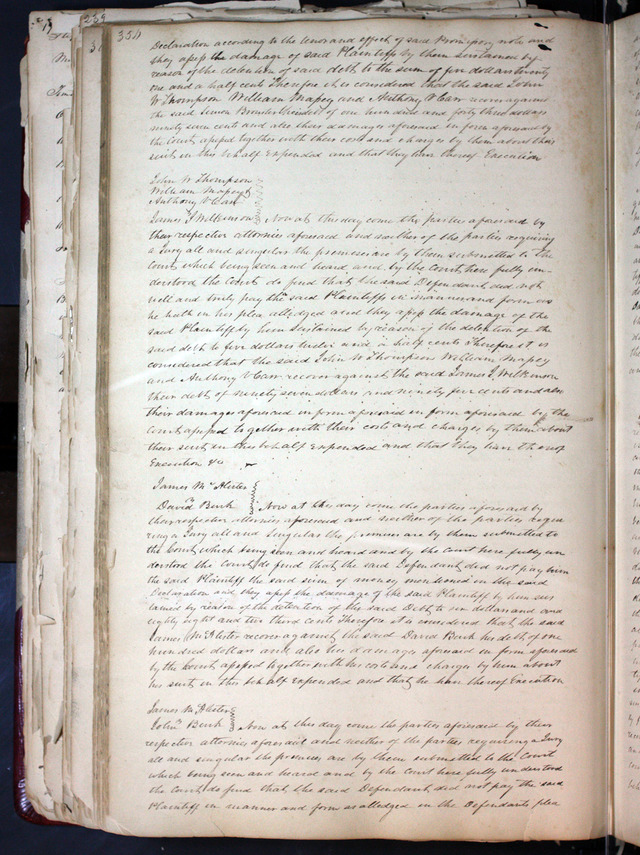 19
259
354
Declaration according to the tenor and effect of said Promissory note and
they assess the damage of said Plaintiffs by them sustained by
reason of the detention of said debt to the sum of five dollars twenty
one and a half cents Therefore it is considered that the said John
W Thompson William Massey and Anthony V Carr recover against
the said Simon debt of one hundred and forty three dollars
ninety seven cents and also their damages aforesaid in form aforesaid by
the Court assessed together with their costs and charges by them about their
suit in this behalf expended and that they have thereof Execution
John W Thompson
William Massey &
Anthony V Carr
James J Wilkinson Now at this day come the parties aforesaid by
their respective attornies aforesaid and neither of the parties requiring
a Jury all and singular the premises are by them submitted to the
Court which being seen and heard and by the Court here fully un-
derstood the Court do find that the said Defendant did not
well and truly pay the said Plaintiffs in manner and form as
he hath in his plea alledged and they assess the damage of the
said Plaintiff by him sustained by reason of the detention of the
said debt to five dollars twelve and a half cents Therefore it is
considered that the said John W Thompson William Massey
and Anthony V Carr recover against the said James J Wilkinson
their debt of ninety seven dollars and ninety five cents and also
their damages aforesaid in form aforesaid in form aforesaid by the
Court assessed together with their costs and charges by them about
their suit in this behalf expended and that they have thereof
Execution &c
James McAlister
David Burk Now at this day come the parties aforesaid by
their respective attornies aforesaid and neither of the parties requi
ring a Jury all and singular the premises are by them submitted to
the Court which being seen and heard and by the Court here fully un
derstood the Court do find that the said Defendant did not pay him
the said Plaintiff the said sum of money mentioned in the said
Declaration and they assess the damage of the said Plaintiff by him sus
tained by reason of the detention of the said Debt to six dollars and
eighty eight and two third cents Therefore it is considered that the said
James McAlister recover against the said David Burk his debt of one
hundred dollars and also his damages aforesaid in form aforesaid
by the Court assessed together with his costs and charges by him about
his suit in this behalf expended and that he have thereof Execution
James McAlister
John Burk Now at this day come the parties aforesaid by their
respective attornies aforesaid and neither of the parties requiring a Jury
all and singular the premises are by them submitted to the Court
which being seen and heard and by the Court here fully understood
the Court do find that the said Defendant did not pay the said
Plaintiff in manner and form as alledged in the Defendants plea